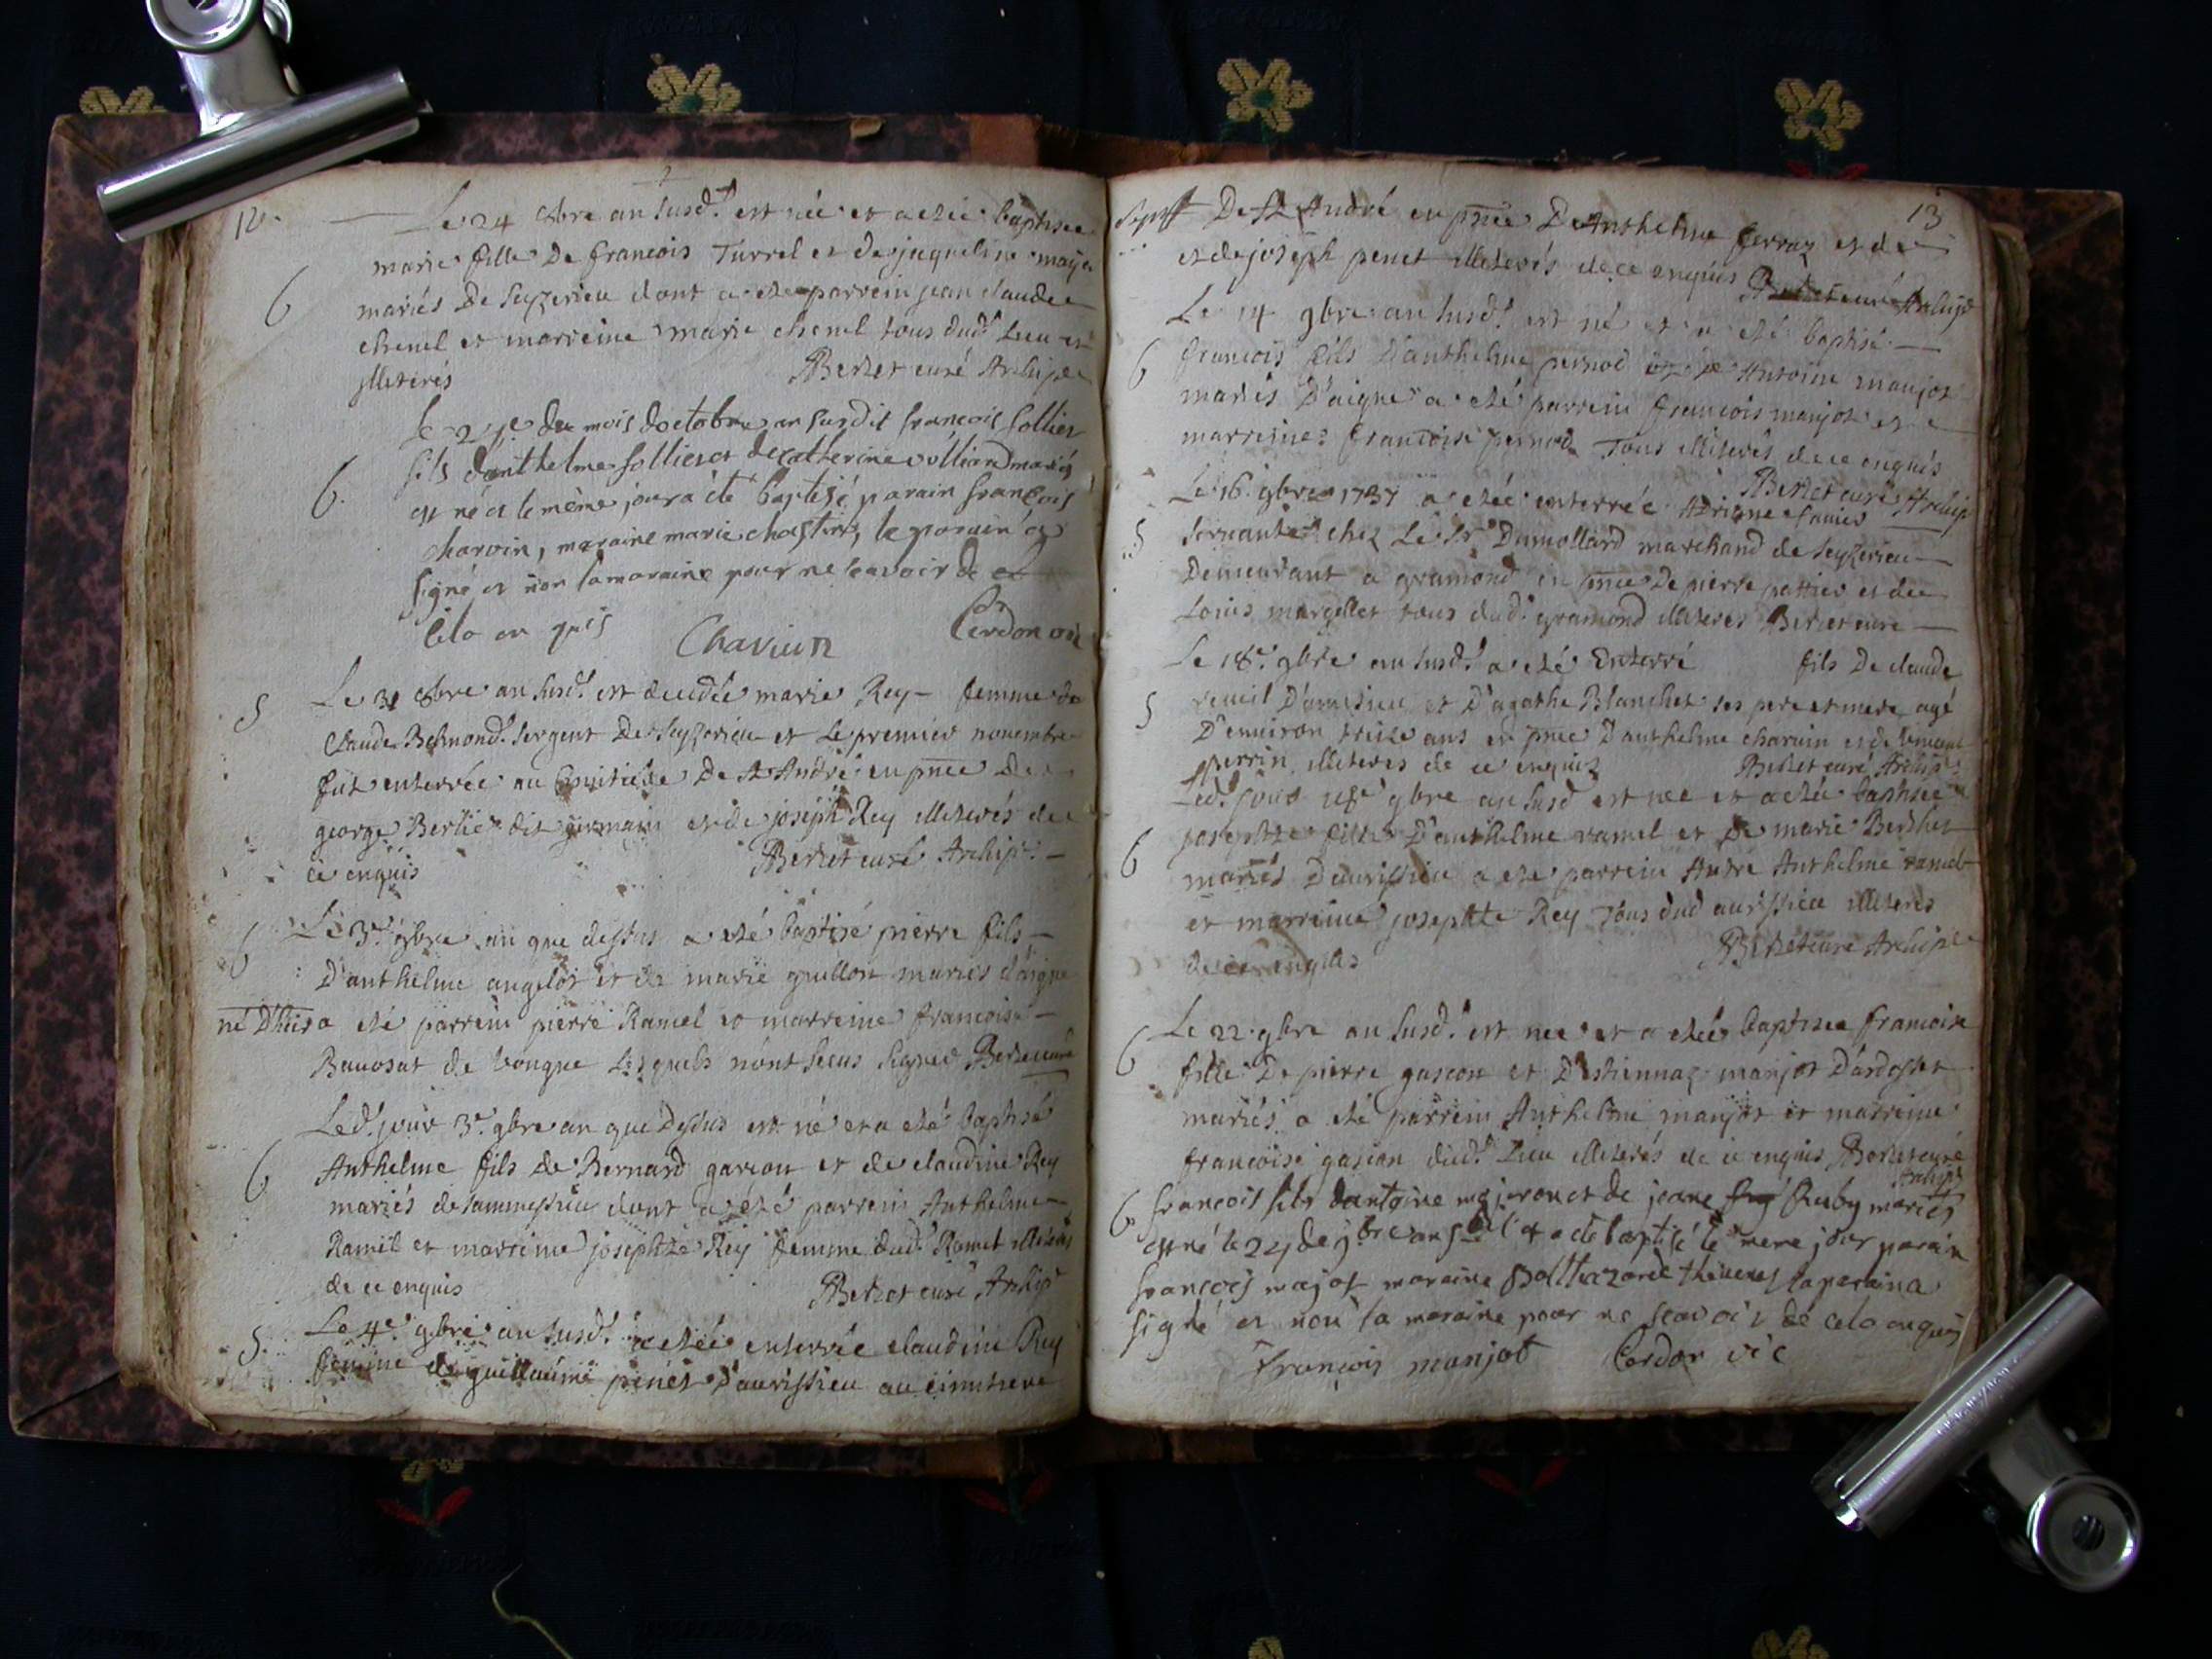 12.
Le 24 8bre an susd.t est née et a etée baptisée
marie fille De francois Turrel et de jaqueline maye
6 mariés De Seyzerieu dont a ete parrein jean claude
chenel et marreine marie chenel tous dud.t Lieu et
illiterés Berlet curé Archip.e
Le 24e du mois doctobre an susdit francois sollier
fils danthelme sollier et de catherine volliand mariés
6. est né et le même jour a été baptisé parain francois
charvin, maraine marie chastin, le parain a
signé et non la maraine pour ne scavoir de
cela en quis Charvin Cerdon vic
Le 31 8bre an susd.t est decedée marie Rey - femme de
5 Claude Belmond.t sergent De Seyzerieu et Le premier novembre
fut enterrée au Cimitiere De St André en pnce de
george Berlie dit germain et de joseph Rey illiterés de
ce enquis Berlet curé Archip.e
6 Le 3e 9bre an que dessus a eté baptisé pierre fils
D'anthelme angelot et de marie guillon mariés d'aigne
né D'hier a eté parrein pierre Ramel et marreine francoise
Bavosat de vongne Lesquels n'ont sceus signer Berlet curé
Led.t jour 3e 9bre an que Dessus est né et a eté baptisé
6 Anthelme fils de Bernard garcon et de claudine Rey
mariés de sammessieu dont a eté parrein Anthelme
Ramel et marreine josephte Rey femme dud.t Ramel illiterés
de ce enquis Berlet curé Archip.e
5. Le 4e 9bre an susd.t a etée enterrée claudine Rey
femme de guillaume penet D'avrissieu au cimitiere
13
De St André en pnce De Anthelme ferraz et de
et de joseph penet illiterés de ce enquis Berlet curé Archip.e
Le 14 9bre an susd.t est né et a eté baptisé
6 francois fils D'anthelme pernod et de Antoine manjot
mariés D'aigne a eté parrein francois manjot et
marreine francoise pernod Tous illiterés de ce enquis
Berlet curé Archip
Le 16. 9bre 1737 a etée enterrée Adriane
5 servante chez Le Sr Dumollard marchand de Seyzerieu
Demeurant a gramond en pnce De pierre pottier et de
Louis margellet tous dud.t gramond illiterés Berlet curé
Le 18e. 9bre an susd.t a eté Enterré fils De claude
5 recuil D'amesieu et D'agathe Blanchet ses pere et mere agé
D'environ treize ans en pnce D'anthelme charvin et de vincent
perrin illiterés de ce enquis Berlet curé Archip.e
Led.t jour 18e 9bre an susd est née et a etée baptisée
6 josephte fille D'anthelme ramel et De marie Berthet
mariés D'avrissieu a eté parrein André Anthelme ramel
et marreine josephte Rey Tous dud avrissieu illiterés
de ce enquis Berlet curé Archip.e
6 Le 22 9bre an susd.t est née et a etée baptisée francoise
fille De pierre gascon et D'estiennaz manjot D'ardosset
mariés a eté parrein Anthelme manjot et marreine
francoise gascon dud.t Lieu illiterés de ce enquis Berlet curé
Archip.e
6 francois fils dantoine majeron et de jeane Ruby mariés
est né le 24 de 9bre an sudit et a eté baptisé le meme jour parain
francois majot maraine Balthazarde thevenet le parain a
signé et non la maraine pour ne scavoir de cela enquis
francois manjot Cerdon vic